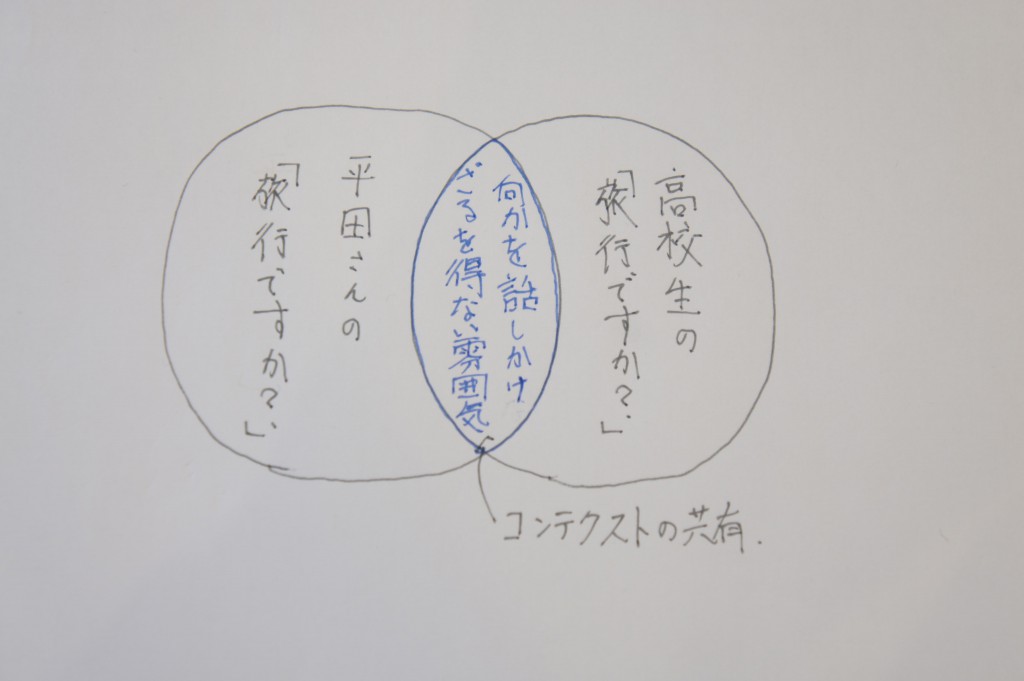 高校生の
「旅行ですか?」
何かを話しかけ
ざるを得ない雰囲気
平田さんの
「旅行ですか?」
コンテクストの共有.